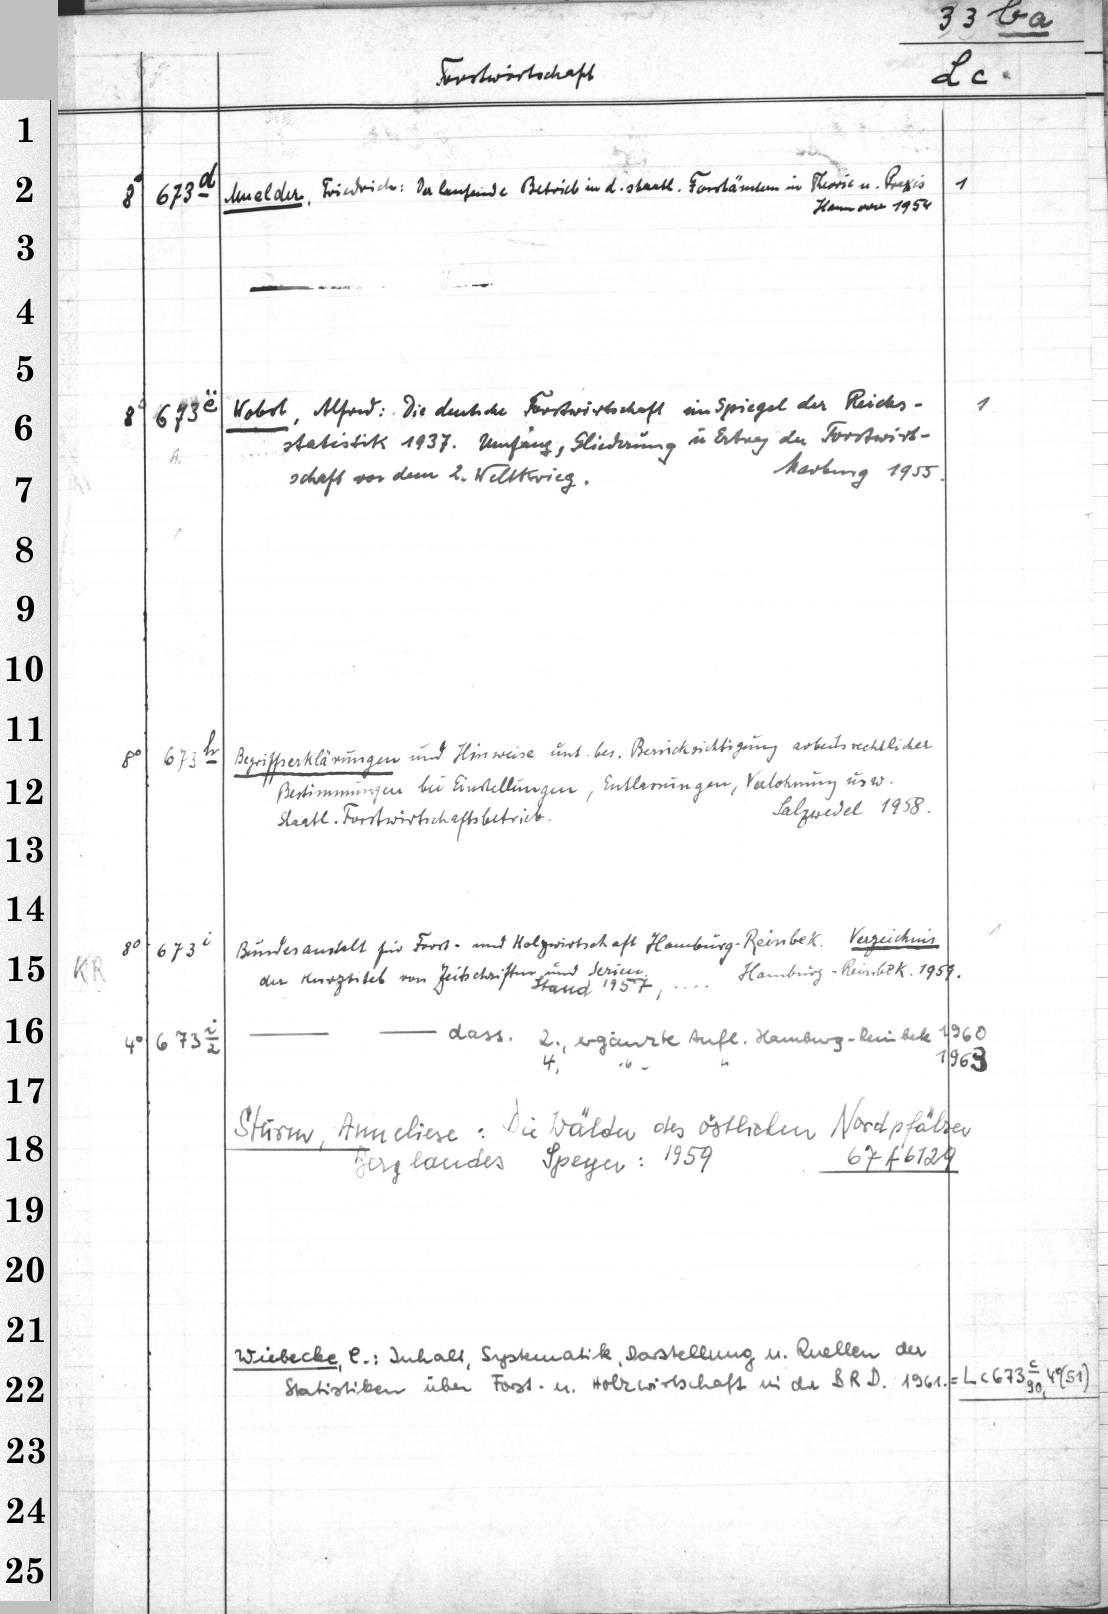 33 ba
Forstwirtschaft
Lc.
1
2
8° 673 d Mnelder, Friedrich: Der laufende Betrieb in d. staatl. Forstämtern in Theorie u. Praxis 1
Hannover 1954
3
4
5
6
8° 673 e Wobst, Alfred: Die deutsche Forstwirtschaft im Spiegel der Reichs- 1
statistik 1937. Umfang, Gliederung u Ertrag der Forstwirt-
7
schaft vor dem 2. Weltkrieg. Marburg 1955.
8
9
10
11
8° 673 h Begriffserklärungen und Hinweise unt. bes. Berücksichtigung arbeitsrechtlicher
12
Bestimmungen bei Einstellungen, Entlassungen, Verlohnung usw.
Staatl. Forstwirtschaftsbetrieb. Salzwedel 1958.
13
14
8° 673 i Bundesanstalt für Forst- und Holzwirtschaft Hamburg-Reinbek. Verzeichnis 1
15
KR der Kurztitel von Zeitschriften und Serien. Hamburg-Reinbek. 1959.
Stand 1957, ....
16
4° 673 i/2 dass. 2., ergänzte Aufl. Hamburg-Reinbek 1960
4, " " 1963
17
Sturm, Anneliese: Die Wälder des östlichen Nordpfälzer
18
Berglandes Speyer: 1959 67 A 6129
19
20
21
Wiebecke, C.: Inhalt, Systematik, Darstellung u. Quellen der
22
Statistiken über Forst- u. Holzwirtschaft in der BRD. 1961. = Lc 673 c/90, 4°(51)
23
24
25